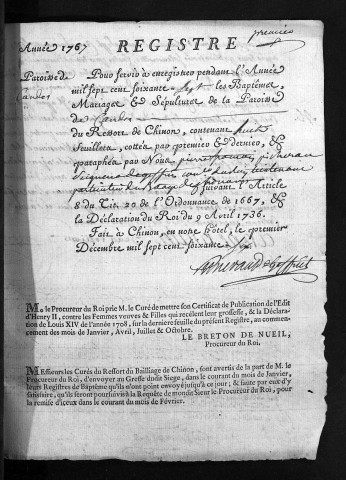 premier
Année 1767 REGISTRE
Paroisse de
Candes
Pour servir à enregistrer pendant l'Année
mil sept cent soixante sept les Baptêmes,
Mariages & Sépultures de la Paroisse
de Candes
du Ressort de Chinon, contenant huit
Feuillets, cottés par premier & dernier, &
paraphés par Nous pierre
Seigneur de lieutenant
particulier du Bailliage de Chinon suivant l'Article
8 du Tit. 20 de l'Ordonnance de 1667, &
la Déclaration du Roi du 9 Avril 1736.
Fait à Chinon, en notre hôtel, le premier
Décembre mil sept cent soixante six
Mr le Procureur du Roi prie M. le Curé de mettre son Certificat de Publication de l'Edit
d'Henry II, contre les Femmes veuves & Filles qui recélent leur grossesse, & la Déclara-
tion de Louis XIV de l'année 1708, sur la derniere feuille du présent Registre, au commen-
cement des mois de Janvier, Avril, Juillet & Octobre.
LE BRETON DE NUEIL,
Procureur du Roi.
Messieurs les Curés du Ressort du Bailliage de Chinon, sont avertis de la part de M. le
Procureur du Roi, d'envoyer au Greffe dudit Siege, dans le courant du mois de Janvier,
leurs Registres de Baptême qu'ils n'ont point envoyé jusqu'à ce jour; & faute par eux d'y
satisfaire, qu'ils seront poursuivis à la Requête de mondit Sieur le Procureur du Roi, pour
la remise d'iceux dans le courant du mois de Février.